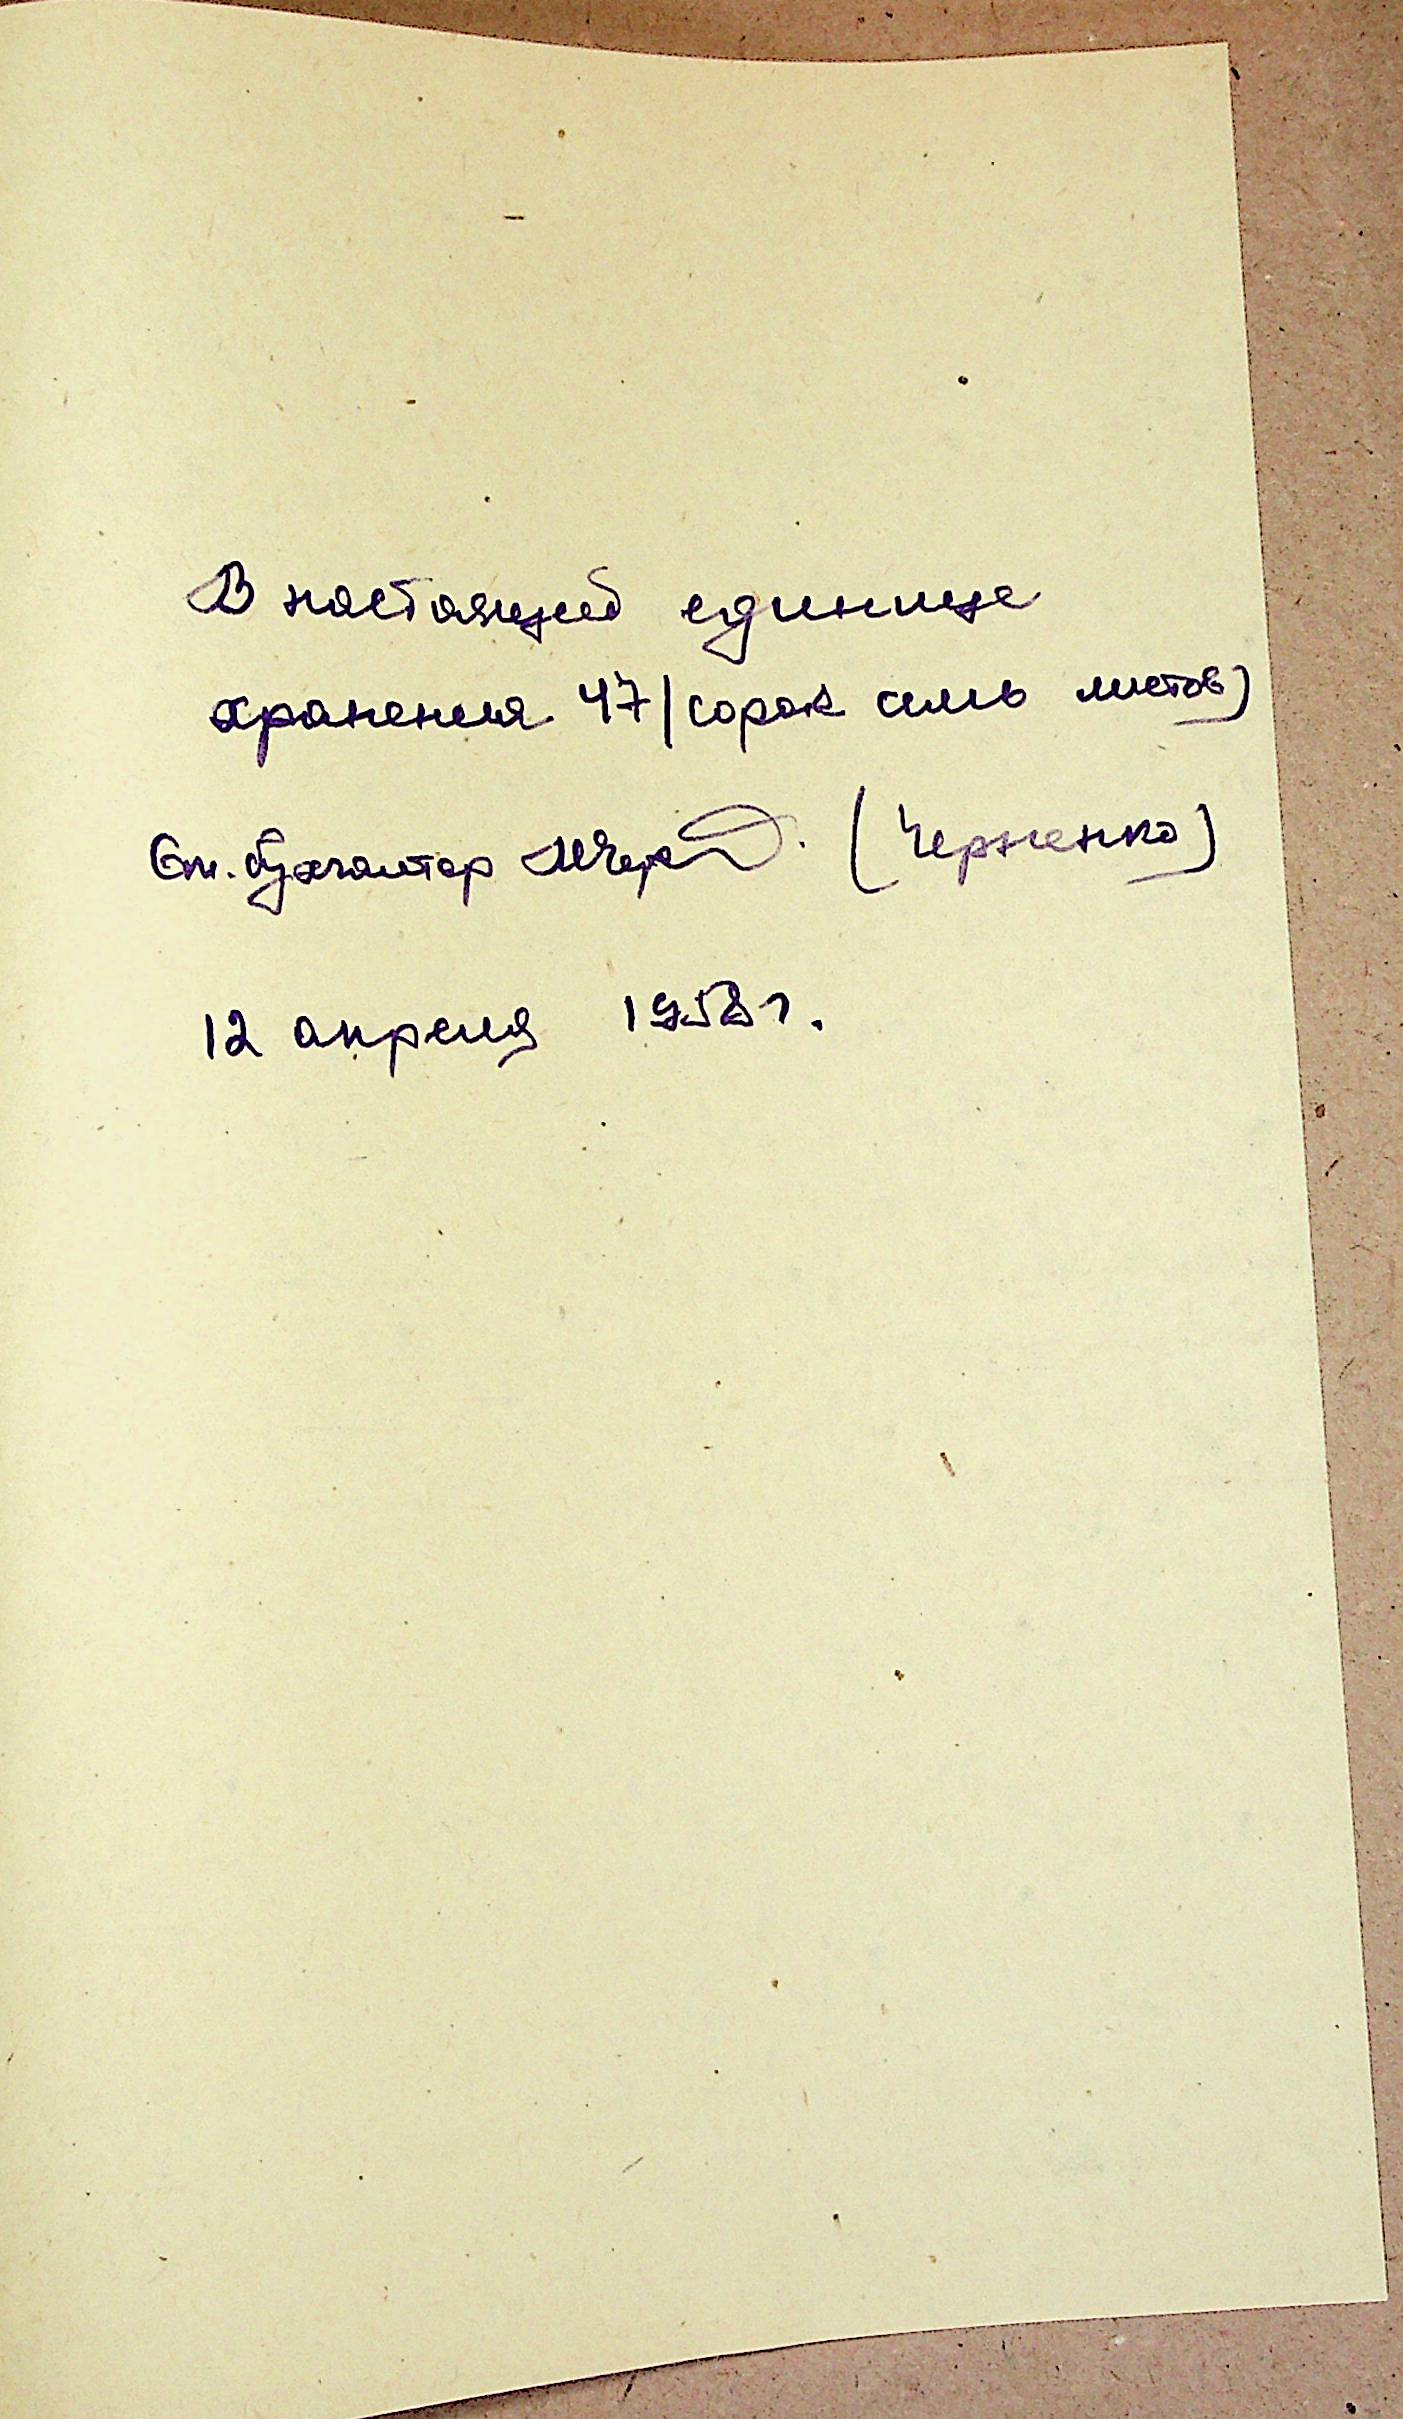 В настоящей единице
хранения 47 (сорок семь листов)
Ст. бухгалтер (Черненко)
12 апреля 1958 г.